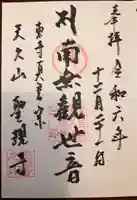 奉拝 令和六年
十二月二十一日
南無観世音
東寺真言宗
天久山 聖現寺